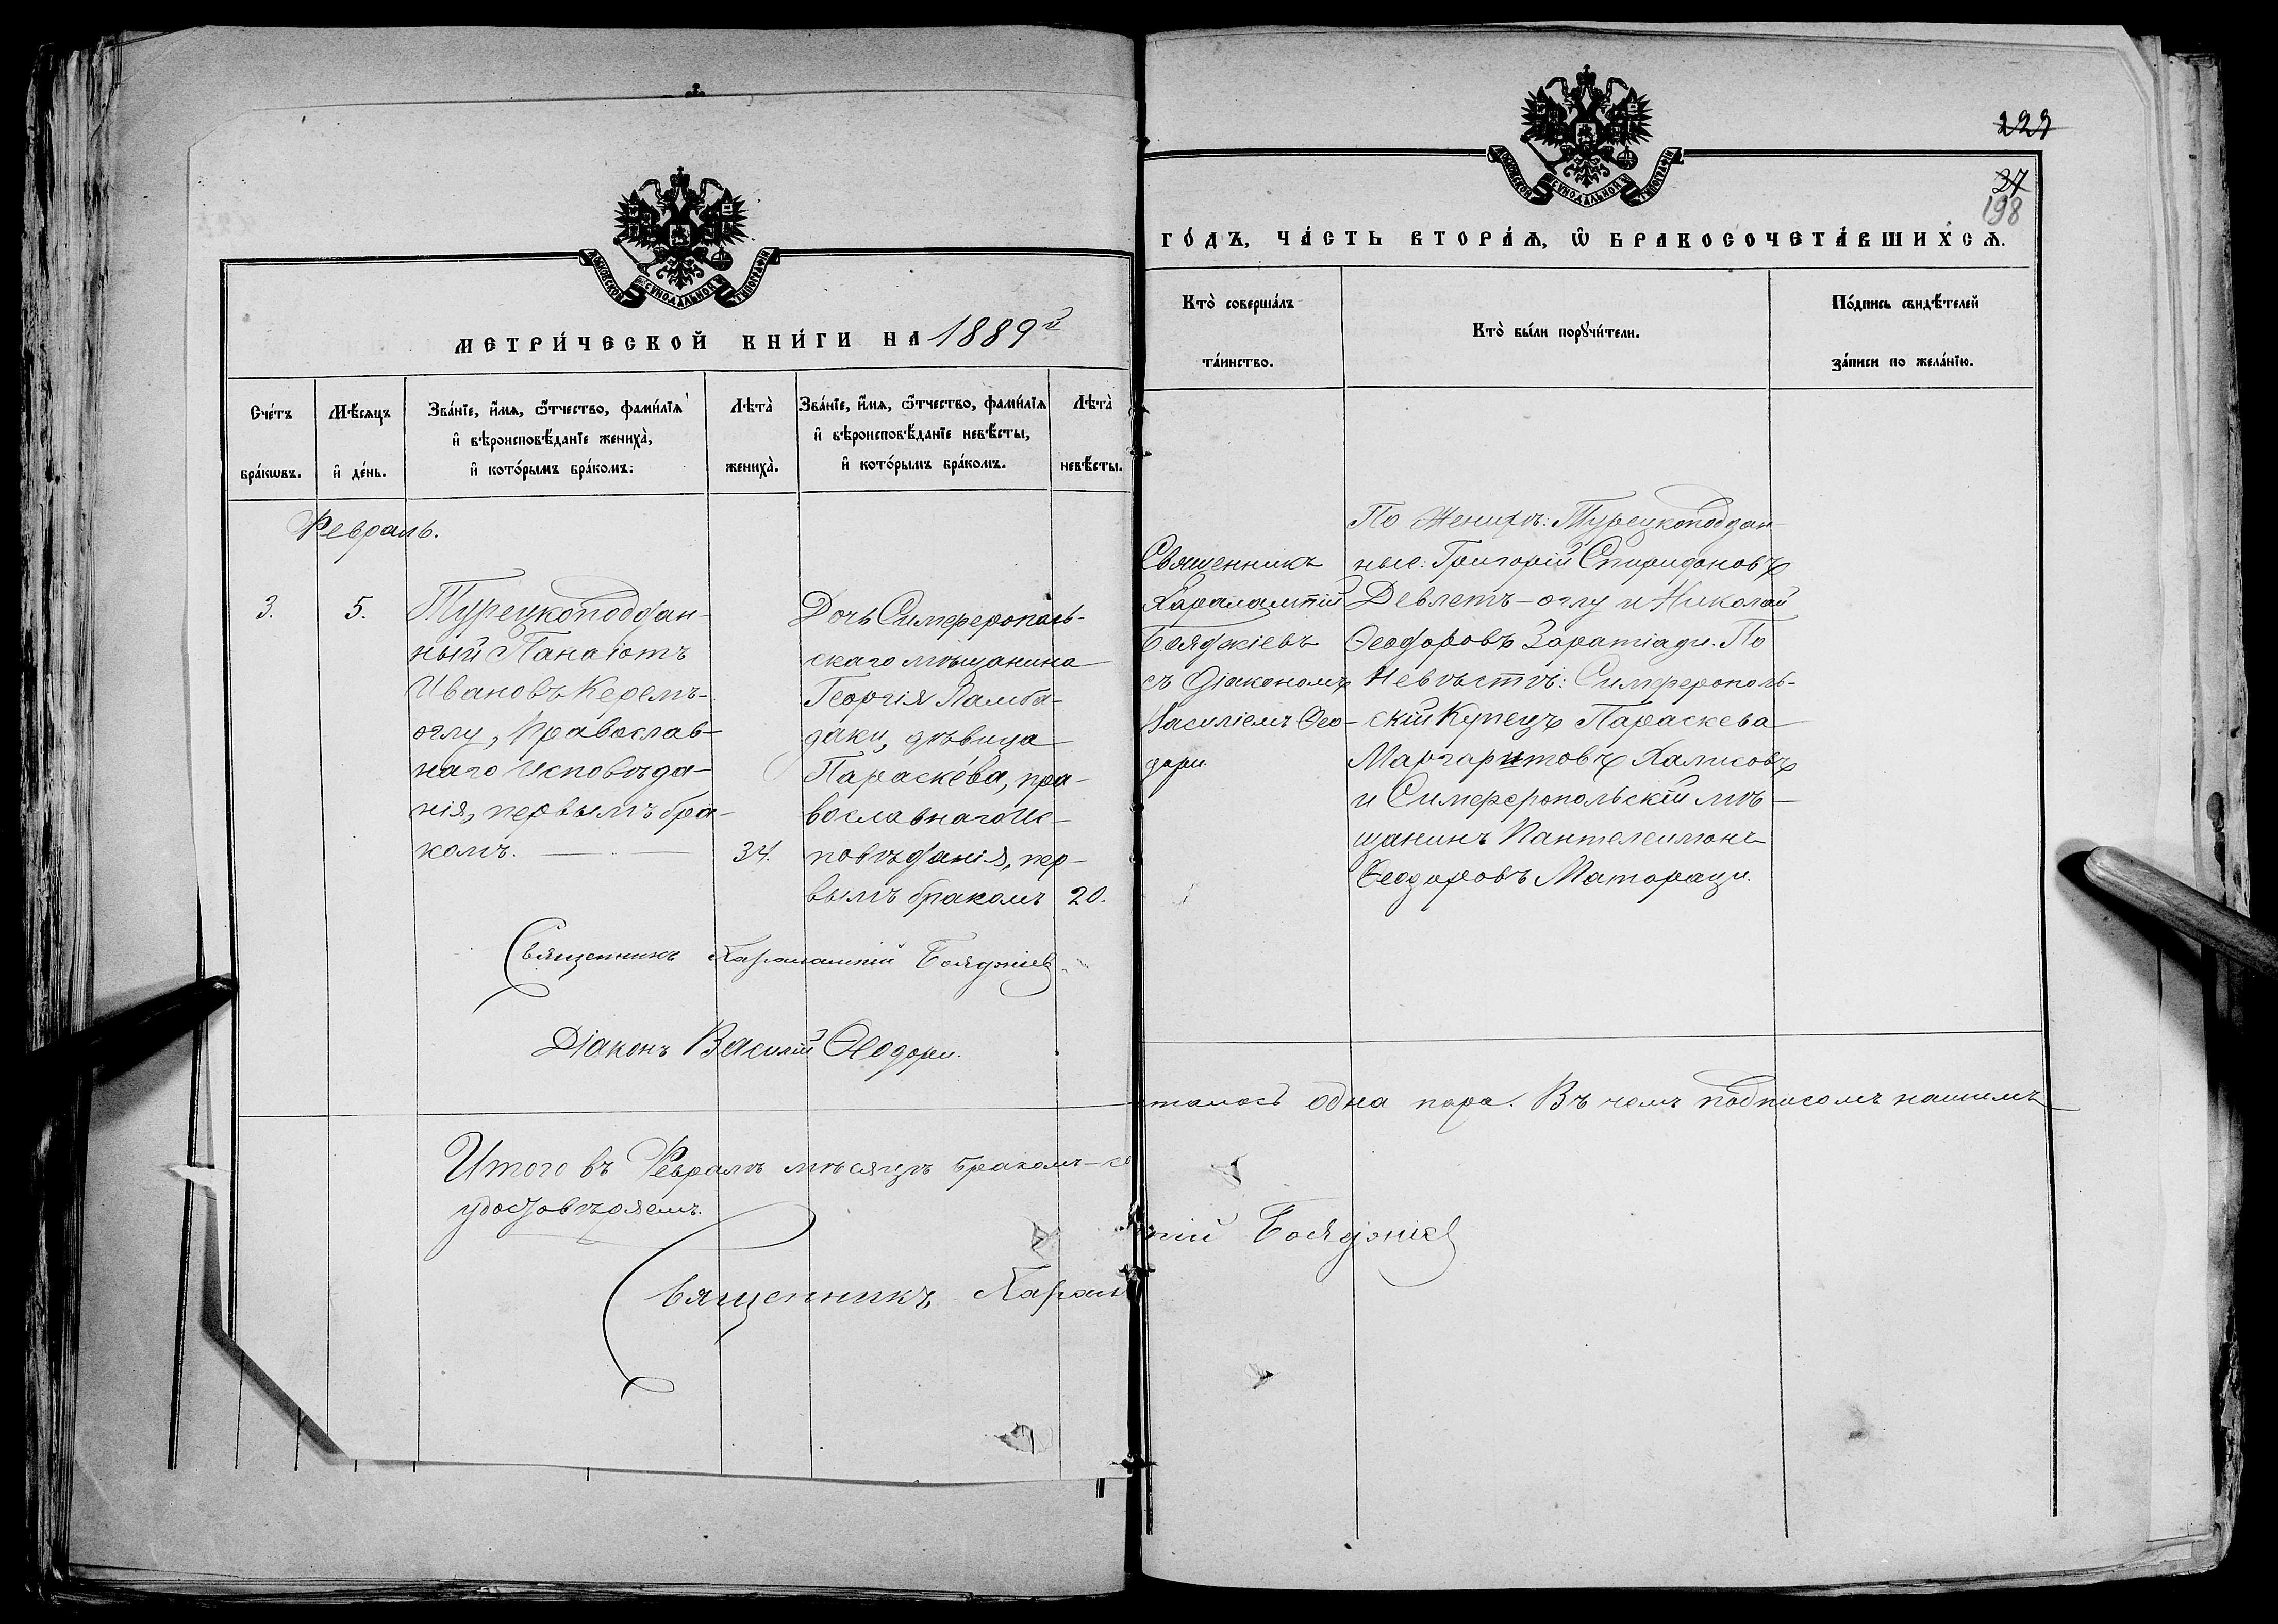 МОСКОВСКОЙ СѴНОДАЛЬНОЙ ТИПОГРАФІИ
МЕТРИ́ЧЕСКОЙ КНИ́ГИ НА 1889й
Сче́тъ бра́кѡвъ.
Мѣ́сяцъ и҆ де́нь.
Зва́нїе, и҆́мѧ, ѻ҆́тчество, фами́лїѧ
и҆ вѣроисповѣ́данїе жениха̀,
и҆ кото́рымъ бра́комъ.
Лѣта̀ жениха̀.
Зва́нїе, и҆́мѧ, ѻ҆́тчество, фами́лїѧ
и҆ вѣроисповѣ́данїе невѣ́сты,
и҆ кото́рымъ бра́комъ.
Лѣта̀ невѣ́сты.
Февраль.
3.
5.
Турецкоподдан-
ный Панаіотъ
Ивановъ Керемъ-
оглу, Православ-
наго исповѣда-
нія, первымъ бра-
комъ.
34.
Дочь Симферополь-
скаго мѣщанина
Георгія Ламба-
даки, дѣвица
Параскева, пра-
вославнаго ис-
повѣданія, пер-
вымъ бракомъ
20.
Священникъ Харалампій Бояджіев
Діаконъ Василій Ѳеодори.
Итого въ Февралѣ мѣсяцѣ бракомъ-со
удостовѣряемъ.
Священникъ Харала
227
27
198
МОСКОВСКОЙ СѴНОДАЛЬНОЙ ТИПОГРАФІИ
ГО́ДЪ, ЧА́СТЬ ВТОРА́Ѧ, Ѡ҆ БРАКОСОЧЕТА́ВШИХСѦ.
Кто̀ соверша́лъ
та́инство.
Кто̀ бы́ли порꙋчи́тели.
По́дпись свидѣ́телей
за́писи по жела́нїю.
Священникъ
Харалампій
Бояджіевъ
съ Діакономъ
Василіемъ Ѳео-
дори.
По Женихѣ: Турецкоподдан-
ные: Григорій Спиридоновъ
Девлетъ-оглу и Николай
Ѳеодоровъ Заратіади. По
Невѣстѣ: Симферополь-
скій Купецъ Параскева
Маргаритовъ Халисовъ
и Симферопольскій мѣ-
щанинъ Пантелеимонъ
Ѳеодоровъ Матораци.
талось одна пара. Въ чемъ подписомъ нашимъ
пій Бояджіев